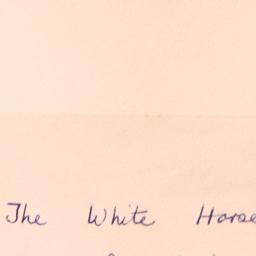 The White Horse